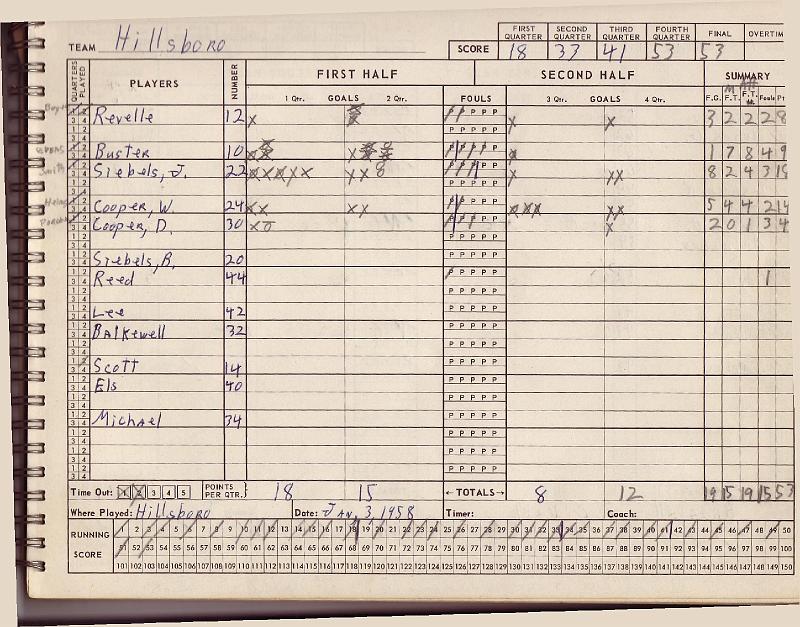 FIRST QUARTER SECOND QUARTER THIRD QUARTER FOURTH QUARTER FINAL OVERTIM
TEAM Hillsboro SCORE 18 33 41 53 53
QUARTERS PLAYED PLAYERS NUMBER FIRST HALF SECOND HALF SUMMARY
1 Qtr. GOALS 2 Qtr. FOULS 3 Qtr. GOALS 4 Qtr. F.G. F.T. F.T. Fouls Pt
Revelle 12 3 2 2 2 8
Buster 10 1 7 8 4 9
Siebels, J. 22 8 2 4 3 18
Cooper, W. 24 5 4 4 2 14
Cooper, D. 30 2 0 1 3 4
Siebels, B. 20
Reed 44 1
Lee 42
Balkewell 32
Scott 14
Els 40
Michael 34
Time Out: 1 2 3 4 5 POINTS PER QTR. 18 15 ←TOTALS→ 8 12 19 15 19 15 53
Where Played: Hillsboro Date: Jan, 3, 1958 Timer: Coach:
RUNNING SCORE
1 2 3 4 5 6 7 8 9 10 11 12 13 14 15 16 17 18 19 20 21 22 23 24 25 26 27 28 29 30 31 32 33 34 35 36 37 38 39 40 41 42 43 44 45 46 47 48 49 50
51 52 53 54 55 56 57 58 59 60 61 62 63 64 65 66 67 68 69 70 71 72 73 74 75 76 77 78 79 80 81 82 83 84 85 86 87 88 89 90 91 92 93 94 95 96 97 98 99 100
101 102 103 104 105 106 107 108 109 110 111 112 113 114 115 116 117 118 119 120 121 122 123 124 125 126 127 128 129 130 131 132 133 134 135 136 137 138 139 140 141 142 143 144 145 146 147 148 149 150